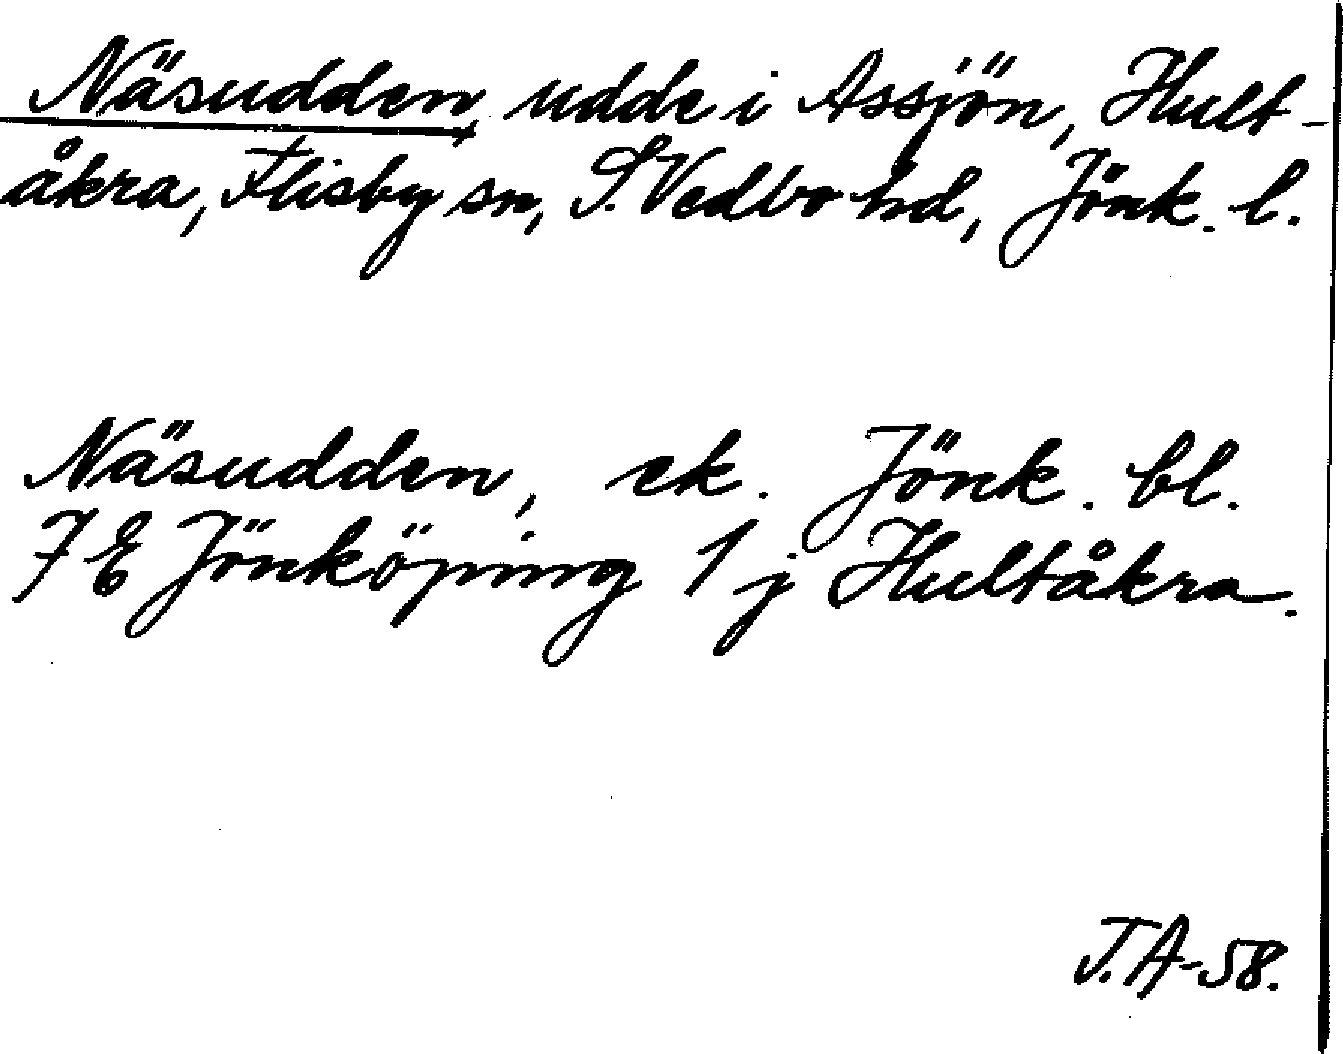 Näsudden, udde i Assjön, Hult-
åkra, Flisby sn, S. Vedbo hd, Jönk. l.
Näsudden, ek. Jönk. bl.
7 E Jönköping 1 j Hultåkra.
J.A-58.